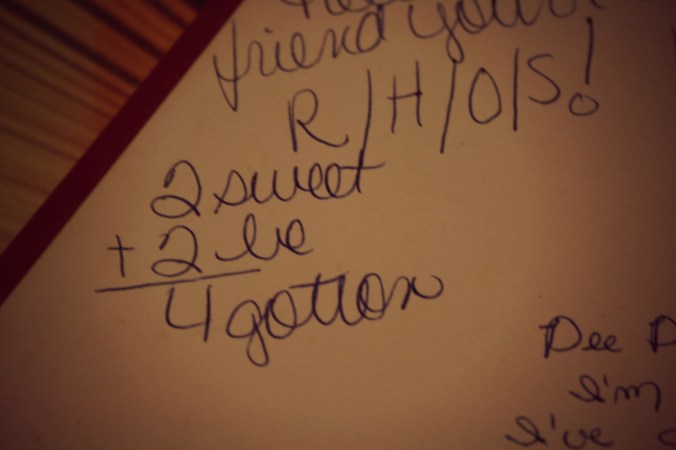 friend you
R/H/O/S!
2 sweet
+ 2 be
4 gotten
Dee
I'm
I've